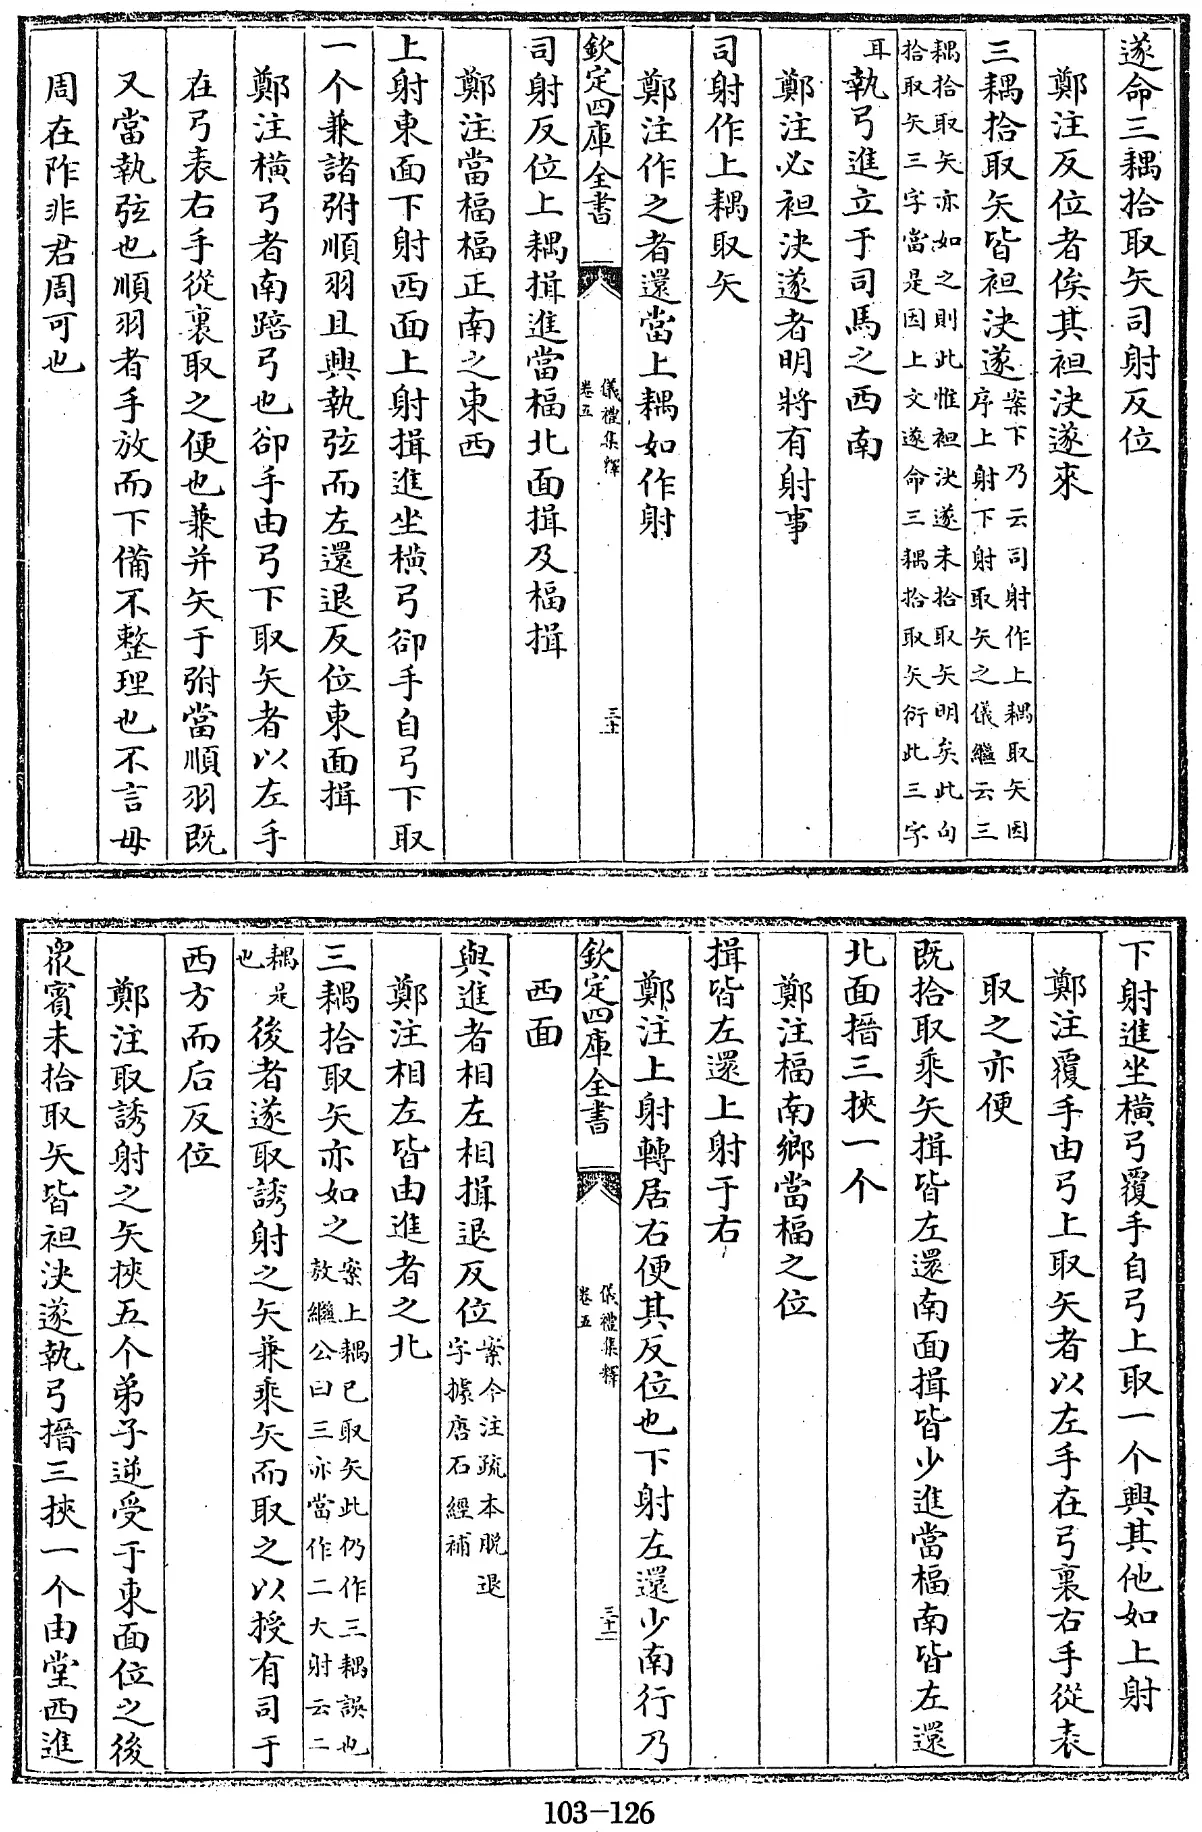 遂命三耦拾取矢司射反位
鄭注反位者俟其袒決遂來
三耦拾取矢皆袒決遂案下乃云司射作上耦取矢因
序上射下射取矢之儀繼云三
耦拾取矢亦如之則此惟袒決遂未拾取矢明矣此句
拾取矢三字當是因上文遂命三耦拾取矢衍此三字
耳執弓進立于司馬之西南
鄭注必袒決遂者明將有射事
司射作上耦取矢
鄭注作之者還當上耦如作射
欽定四庫全書
儀禮集釋
卷五
三十一
司射反位上耦揖進當楅北面揖及楅揖
鄭注當楅楅正南之東西
上射東面下射西面上射揖進坐橫弓卻手自弓下取
一个兼諸弣順羽且興執弦而左還退反位東面揖
鄭注橫弓者南踣弓也卻手由弓下取矢者以左手
在弓表右手從裏取之便也兼并矢于弣當順羽既
又當執弦也順羽者手放而下備不整理也不言毋
周在阼非君周可也
下射進坐橫弓覆手自弓上取一个興其他如上射
鄭注覆手由弓上取矢者以左手在弓裏右手從表
取之亦便
既拾取乘矢揖皆左還南面揖皆少進當楅南皆左還
北面搢三挾一个
鄭注楅南鄉當楅之位
揖皆左還上射于右
鄭注上射轉居右便其反位也下射左還少南行乃
欽定四庫全書
儀禮集釋
卷五
三十二
西面
與進者相左相揖退反位案今注疏本脫退
字據唐石經補
鄭注相左皆由進者之北
三耦拾取矢亦如之案上耦已取矢此仍作三耦誤也
敖繼公曰三亦當作二大射云二
耦是
也後者遂取誘射之矢兼乘矢而取之以授有司于
西方而后反位
鄭注取誘射之矢挾五个弟子逆受于東面位之後
眾賓未拾取矢皆袒決遂執弓搢三挾一个由堂西進
103-126